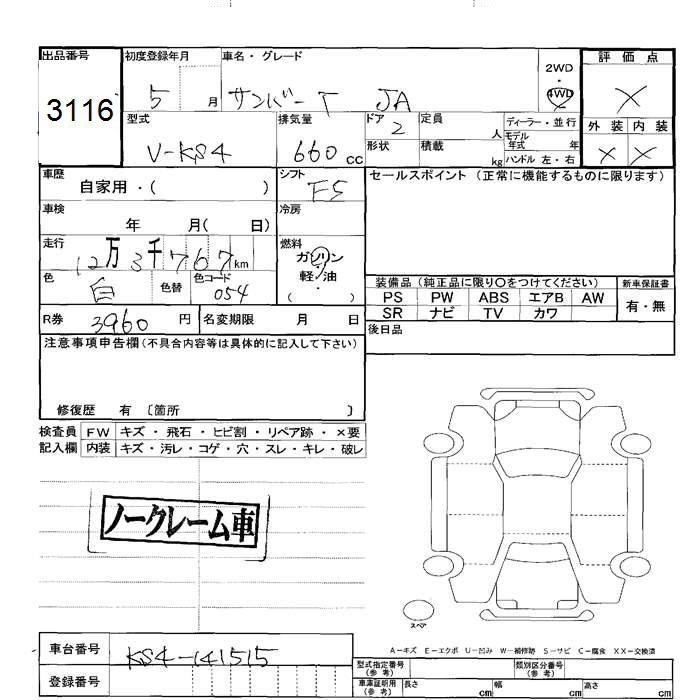 出品番号 初度登録年月 車名・グレード 評価点
3116 5 月 サンバー T JA 2WD 4WD ×
型式 排気量 ドア 2 定員 人 ディーラー・並行 外装 内装
V-KS4 660 CC 形状 積載 kg モデル年式 年 × ×
ハンドル 左・右
車歴 自家用・( ) シフト F5 セールスポイント (正常に機能するものに限ります)
車検 年 月( 日) 冷房
走行 12万3千767km 燃料 ガソリン
軽・油
( )
色 白 色替 色コード 054
装備品 (純正品に限り〇をつけてください) 新車保証書
PS PW ABS エアB AW 有・無
SR ナビ TV カワ
R券 3960 円 名変期限 月 日 後日品
注意事項申告欄(不具合内容等は具体的に記入して下さい)
修復歴 有 〔箇所 〕
検査員 FW キズ・飛石・ヒビ割・リペア跡・×要
記入欄 内装 キズ・汚レ・コゲ・穴・スレ・キレ・破レ
ノークレーム車
スペア
A－キズ E－エクボ U－凹み W－補修跡 S－サビ C－腐食 XX－交換済
車台番号 KS4-141515
登録番号
型式指定番号 (参考) 類別区分番号 (参考)
車庫証明用 (参考) 長さ cm 幅 cm 高さ cm